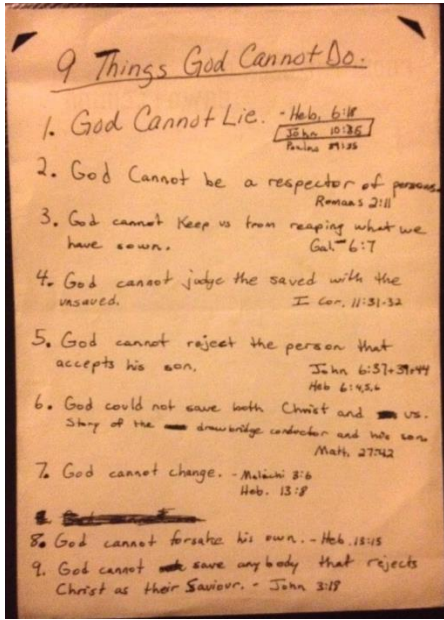 9 Things God Cannot Do.
1. God Cannot Lie. - Heb. 6:18
John 10:35
Psalms 89:35
2. God Cannot be a respector of persons.
Romans 2:11
3. God cannot Keep us from reaping what we
have sown. Gal - 6:7
4. God cannot judge the saved with the
unsaved. I Cor. 11:31-32
5. God cannot reject the person that
accepts his son. John 6:37+39+44
Heb 6:4,5,6
6. God could not save both Christ and us.
Story of the drawbridge conductor and his son
Math. 27:42
7. God cannot change. - Malachi 3:6
Heb. 13:8
8. God cannot forsake his own. - Heb. 13:15
9. God cannot save anybody that rejects
Christ as their Saviour. - John 3:18